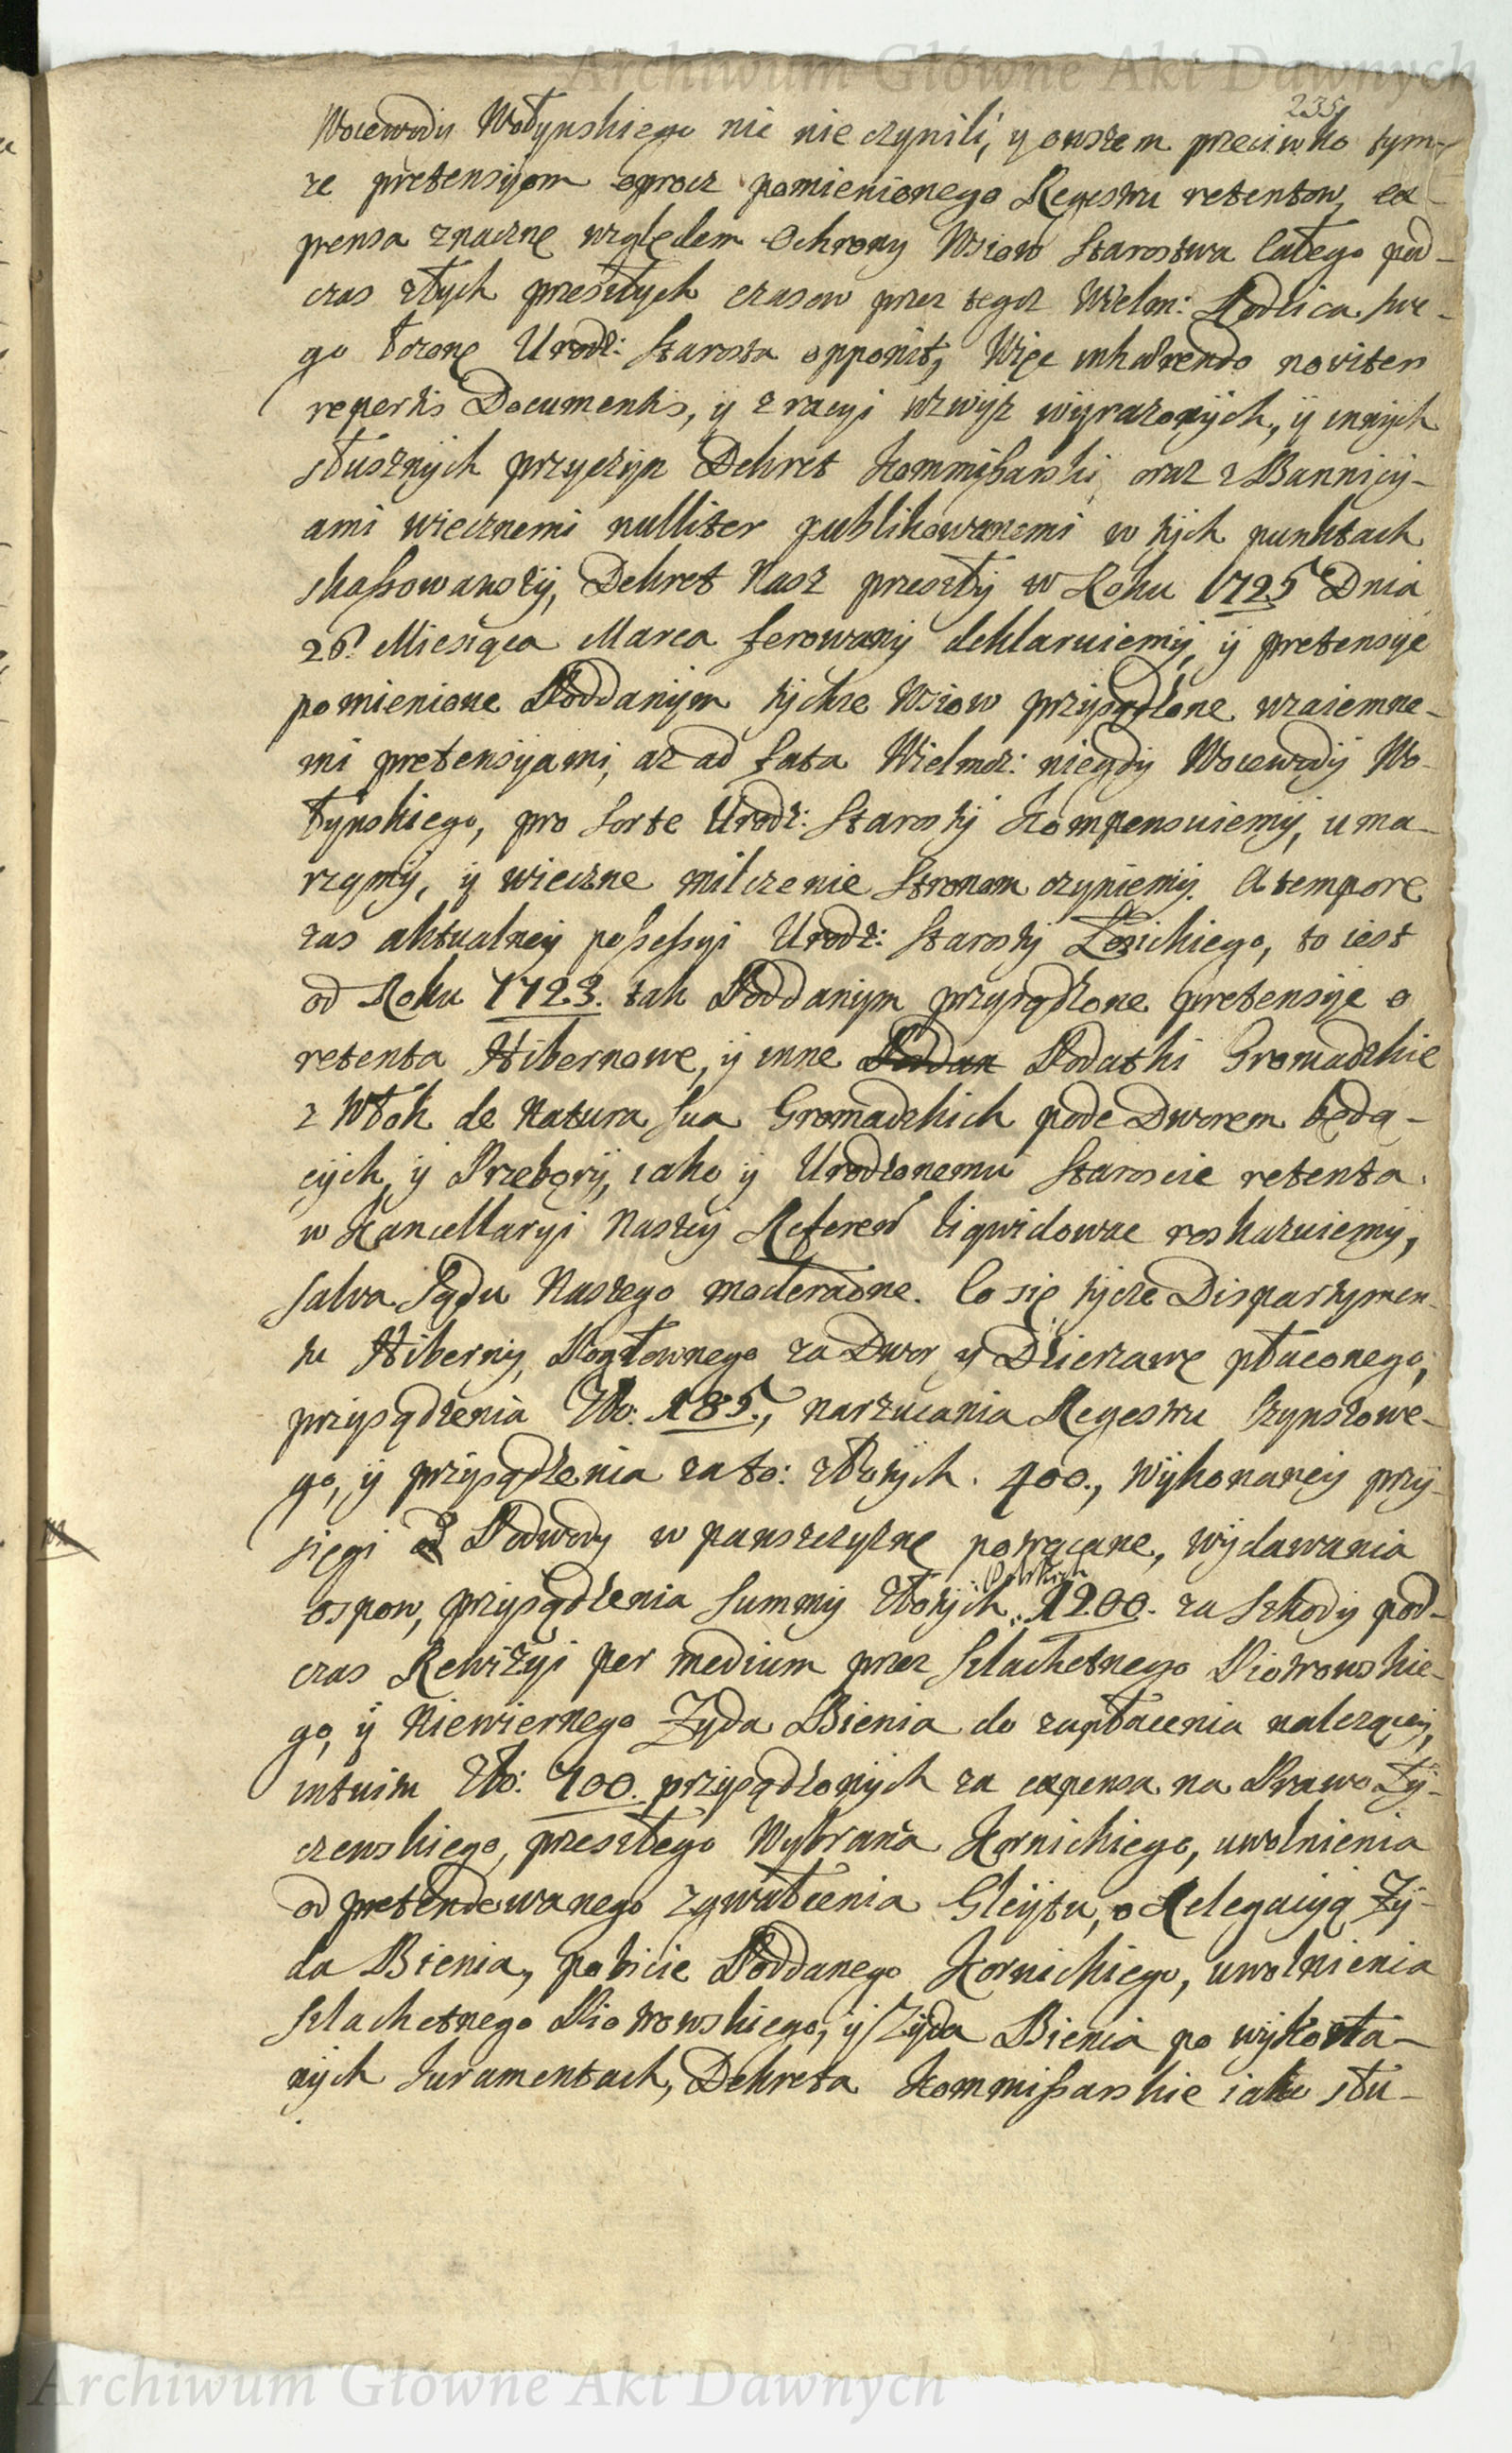 Archiwum Główne Akt Dawnych
235
Woiewody Wołynskiego nic nie czynili, y owszem przeciwko tym-
ze pretensyom oprocz pomienionego Regestru retentow, ex-
pensa znaczne względem Ochrony Wsiow Starostwa Całego pod-
czas złych preszłych czasow przez tegoz Wielm: Rodzica swe-
go łozone Urodz: Starosta opponit, Więc inhaerendo noviter
repertis Documentis, y z racyi wzwyz wyrazonych, y innych
słusznych przyczyn Dekret Kommissarski, oraz z Bannicy-
ami wiecznemi nulliter publikowanemi w tych punktach
skassowawszy, Dekret Nasz przeszły w Roku 1725 Dnia
26. Miesiąca Marca ferowany deklaruiemy, y pretensye
pomienione Poddanym tychze Wsiow przysądzone wzaiemne-
mi pretensyami, az ad fata Wielmoz: niegdy Woiewody Wo-
łynskiego, pro sorte Urodz: Starosty Kompensuiemy, uma-
rzamy, y wieczne milczenie Stronom czyniemy. A tempore
zas aktualney possessyi Urodz: Starosty Łosickiego, to iest
od Roku 1723. tak Poddanym przysądzone pretensye o
retenta Hibernowe, y inne Poddan Podatki Gromadzkie
z Włok de Natura sua Gromadzkich pode Dworem będą-
cych, y Przebory, iako y Urodzonemu Staroscie retenta
w Kancellaryi Naszey Referen liqwidowac roskazuiemy,
salva Sądu Naszego moderaone. Co się tycze Dispartymen-
tu Hiberny, Pogłownego za Dwor y Dzierzawę płaconego,
przysądzenia Zło: 185., narzucania Regestru Czynszowe-
go, y przysądzenia za to: złotych. 400., wykonaney przy-
sięgi o Podwody w panszczyznę potrącane, wydawania
ospow, przysądzenia Summy Złotych Polskich 1200. za Szkody pod-
czas Rewizyi per medium przez Szlachetnego Piotrowskie-
go, y Niewiernego Zyda Bienia do zapłacenia nalezącey,
intuitu Zło: 700. przysądzonych za expensa na Prawo Ły-
czewskiego, preszłego Wybranca Kornickiego, uwolnienia
od pretendowanego zgwałcenia Gleytu, o Relegacyą Zy-
da Bienia, pobicie Poddanego Kornickiego, uwolnienia
Szlachetnego Piotrowskiego, y Zyda Bienia po wykona-
nych Iuramentach, Dekreta Kommissarskie iako słu-
Archiwum Główne Akt Dawnych